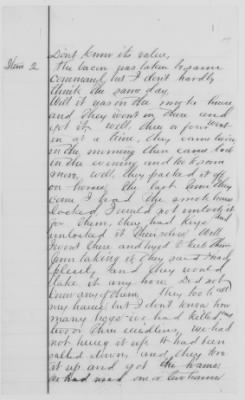 Don't know its value.
Item 2 The bacon was taken to same
command, but I don't hardly
think the same day.
Well it was in the smoke house
and they went in there and
got it. Well, they a few went
in at a time, they came
in the morning then came back
in the evening and took some
more. Well, they packed it off
on horses the last time they
came I had the smoke house
locked I would not unlock it
for them, they had keys and
unlocked it themselves. Well
I went there and tried to keep them
from taking it they said
and they would
take it any how. Did not
know any of them. They took all
my hams but I don't know how
many hogs we had killed,
two or three middlins, we had
not hung it up it had been
salted down, and they
it up and got the hams
we had used one or two hams